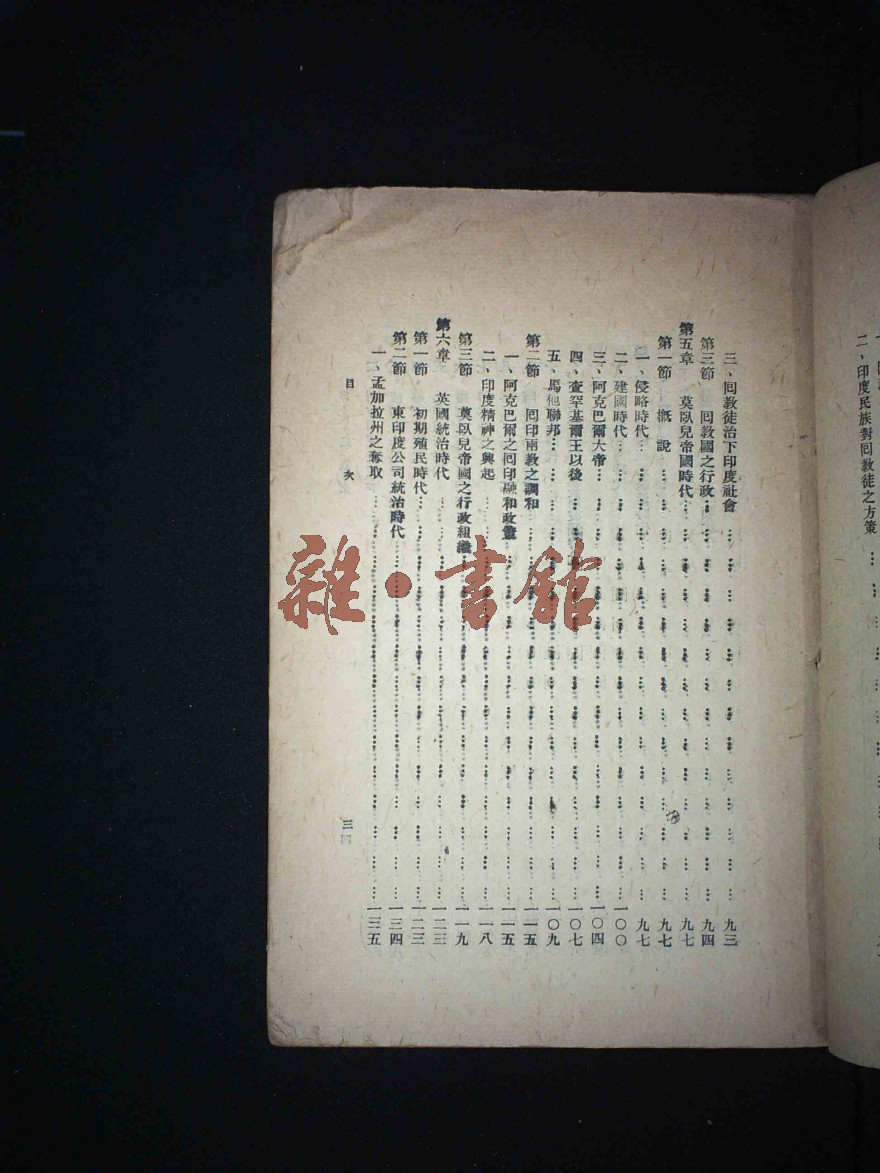 二、印度民族對囘教徒之方策
三、囘教徒治下印度社會 九三
第三節 囘教國之行政 九四
第五章 莫臥兒帝國時代 九七
第一節 概說 九七
一、侵略時代 九七
二、建國時代 一〇〇
三、阿克巴爾大帝 一〇四
四、查罕基爾王以後 一〇七
五、馬他聯邦 一〇九
第二節 囘印兩教之調和 一一五
一、阿克巴爾之囘印融和政畫 一一五
二、印度精神之興起 一一八
第三節 莫臥兒帝國之行政組織 一一九
第六章 英國統治時代 一二三
第一節 初期殖民時代 一二三
第二節 東印度公司統治時代 一三四
一、孟加拉州之奪取 一三五
目次
三
雜·書館